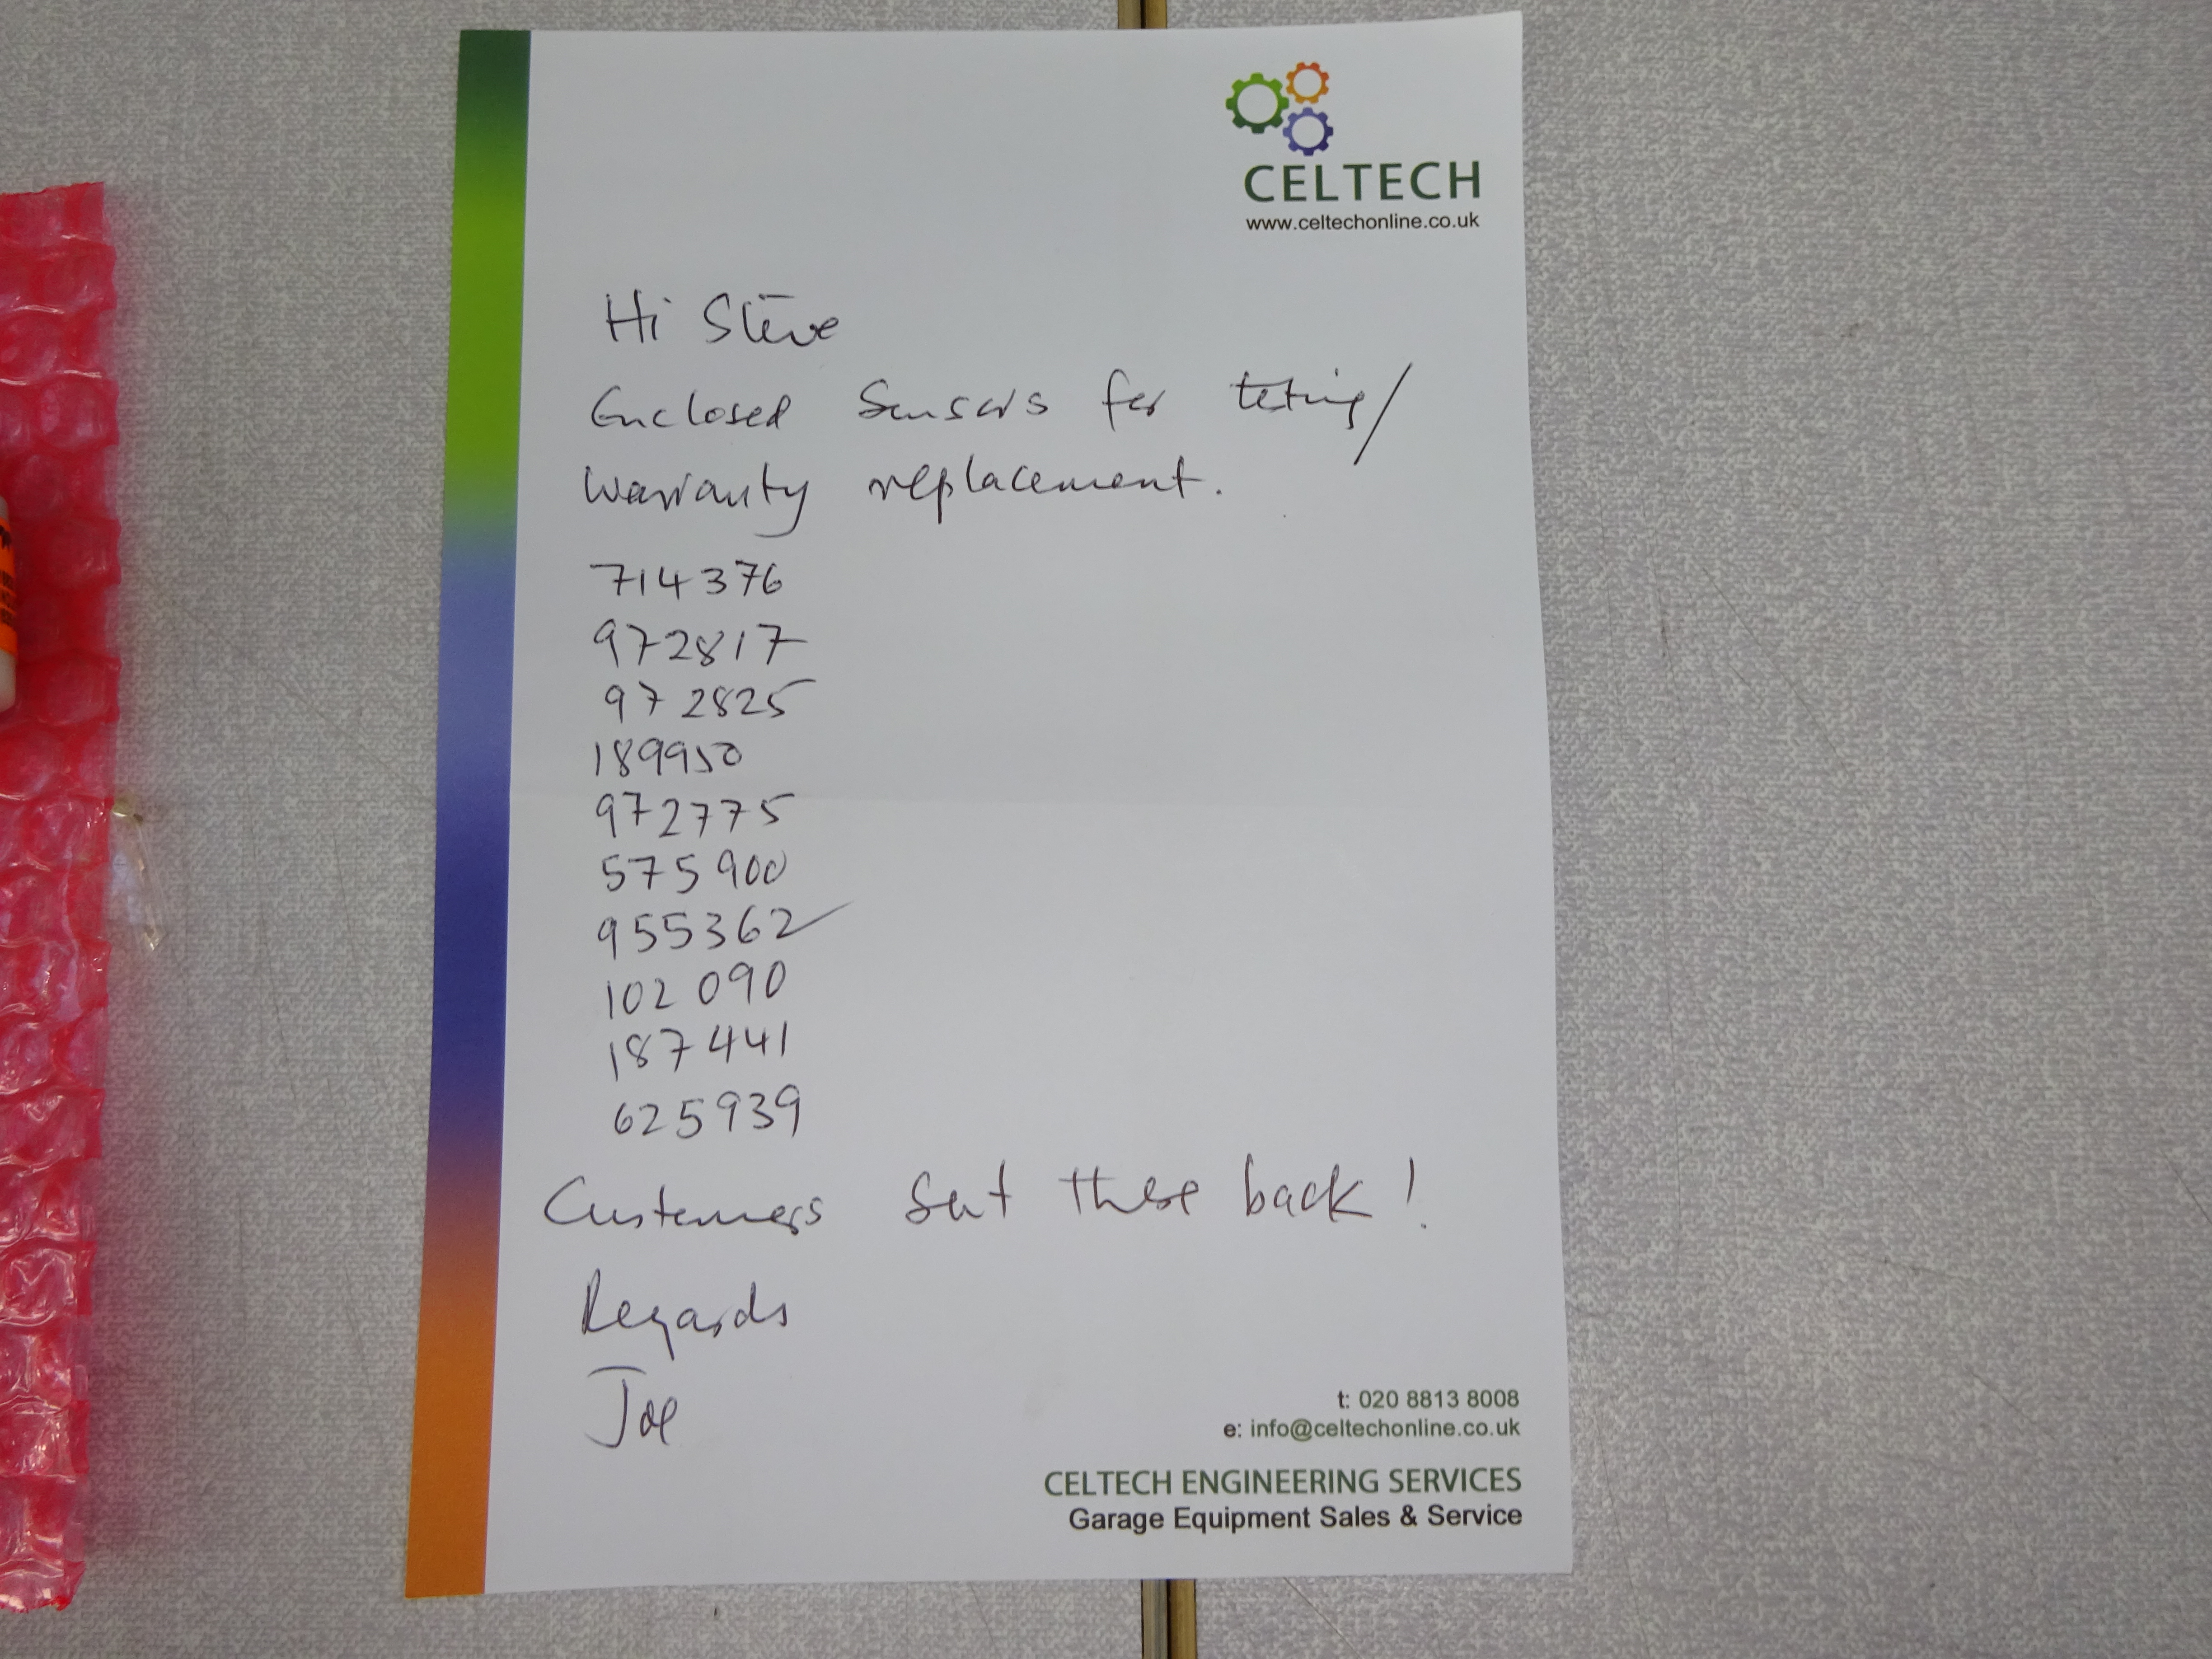 CELTECH
www.celtechonline.co.uk
Hi Steve
Enclosed Sensors for teting/
Warranty replacement.
714376
972817
972825
189950
972775
575900
955362
102090
187441
625939
Customers Sent these back!
Regards
Joe
t: 020 8813 8008
e: info@celtechonline.co.uk
CELTECH ENGINEERING SERVICES
Garage Equipment Sales & Service